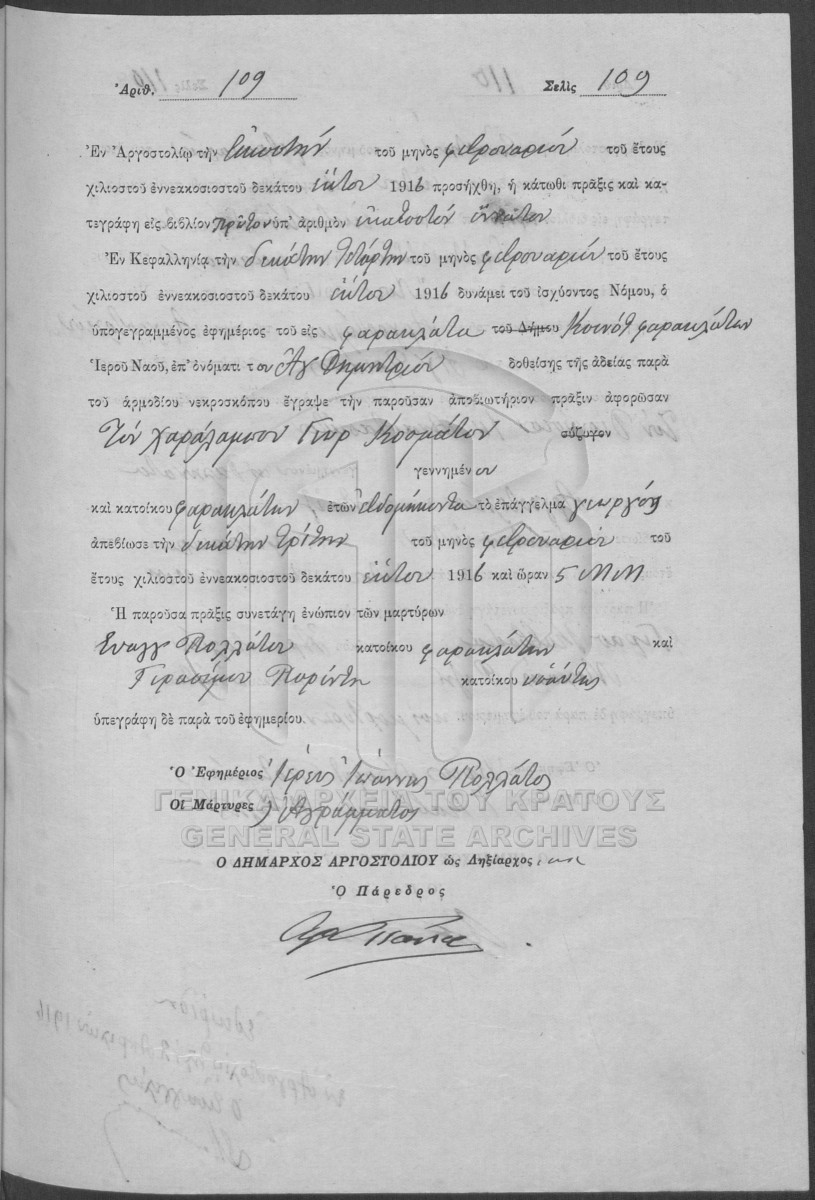 Ἀριθ. 109 Σελὶς 109
Ἐν Ἀργοστολίῳ τὴν εἰκοστὴν τοῦ μηνὸς φεβρουαρίου τοῦ ἔτους
χιλιοστοῦ ἐννεακοσιοστοῦ δεκάτου ἕκτου 1916 προσήχθη, ἡ κάτωθι πρᾶξις καὶ κα-
τεγράφη εἰς βιβλίον πρῶτον ὑπ' ἀριθμὸν ἑκατοστὸν ἔννατον
Ἐν Κεφαλληνίᾳ τὴν δεκάτην τετάρτην τοῦ μηνὸς φεβρουαρίου τοῦ ἔτους
χιλιοστοῦ ἐννεακοσιοστοῦ δεκάτου ἕκτου 1916 δυνάμει τοῦ ἰσχύοντος Νόμου, ὁ
ὑπογεγραμμένος ἐφημέριος τοῦ εἰς φαρακλάτα τοῦ Δήμου Κοινότ φαρακλάτων
Ἱεροῦ Ναοῦ, ἐπ' ὀνόματι του Ἁγ Δημητρίου δοθείσης τῆς ἀδείας παρὰ
τοῦ ἁρμοδίου νεκροσκόπου ἔγραψε τὴν παροῦσαν ἀποβιωτήριον πρᾶξιν ἀφορῶσαν
Τὸν Χαράλαμπον Γεωρ Κοσμάτον σύζυγον
γεννημένον
καὶ κατοίκου φαρακλάτων, ἐτῶν ἑβδομήκοντα τὸ ἐπάγγελμα γεωργός
ἀπεβίωσε τὴν δεκάτην τρίτην τοῦ μηνὸς φεβρουαρίου τοῦ
ἔτους χιλιοστοῦ ἐννεακοσιοστοῦ δεκάτου ἕκτου 1916 καὶ ὥραν 5 ΜΜ
Ἡ παροῦσα πρᾶξις συνετάγη ἐνώπιον τῶν μαρτύρων
Ευαγγ Πολλάτου κατοίκου φαρακλάτων καὶ
Γερασίμου κατοίκου ὡσαύτως
ὑπεγράφη δὲ παρὰ τοῦ ἐφημερίου.
Ὁ Ἐφημέριος Ἱερεὺς Ἰωάννης Πολλάτος
Οἱ Μάρτυρες Ἀγράμματος
ΓΕΝΙΚΑ ΑΡΧΕΙΑ ΤΟΥ ΚΡΑΤΟΥΣ
GENERAL STATE ARCHIVES
Ο ΔΗΜΑΡΧΟΣ ΑΡΓΟΣΤΟΛΙΟΥ ὡς Ληξίαρχος
Ὁ Πάρεδρος